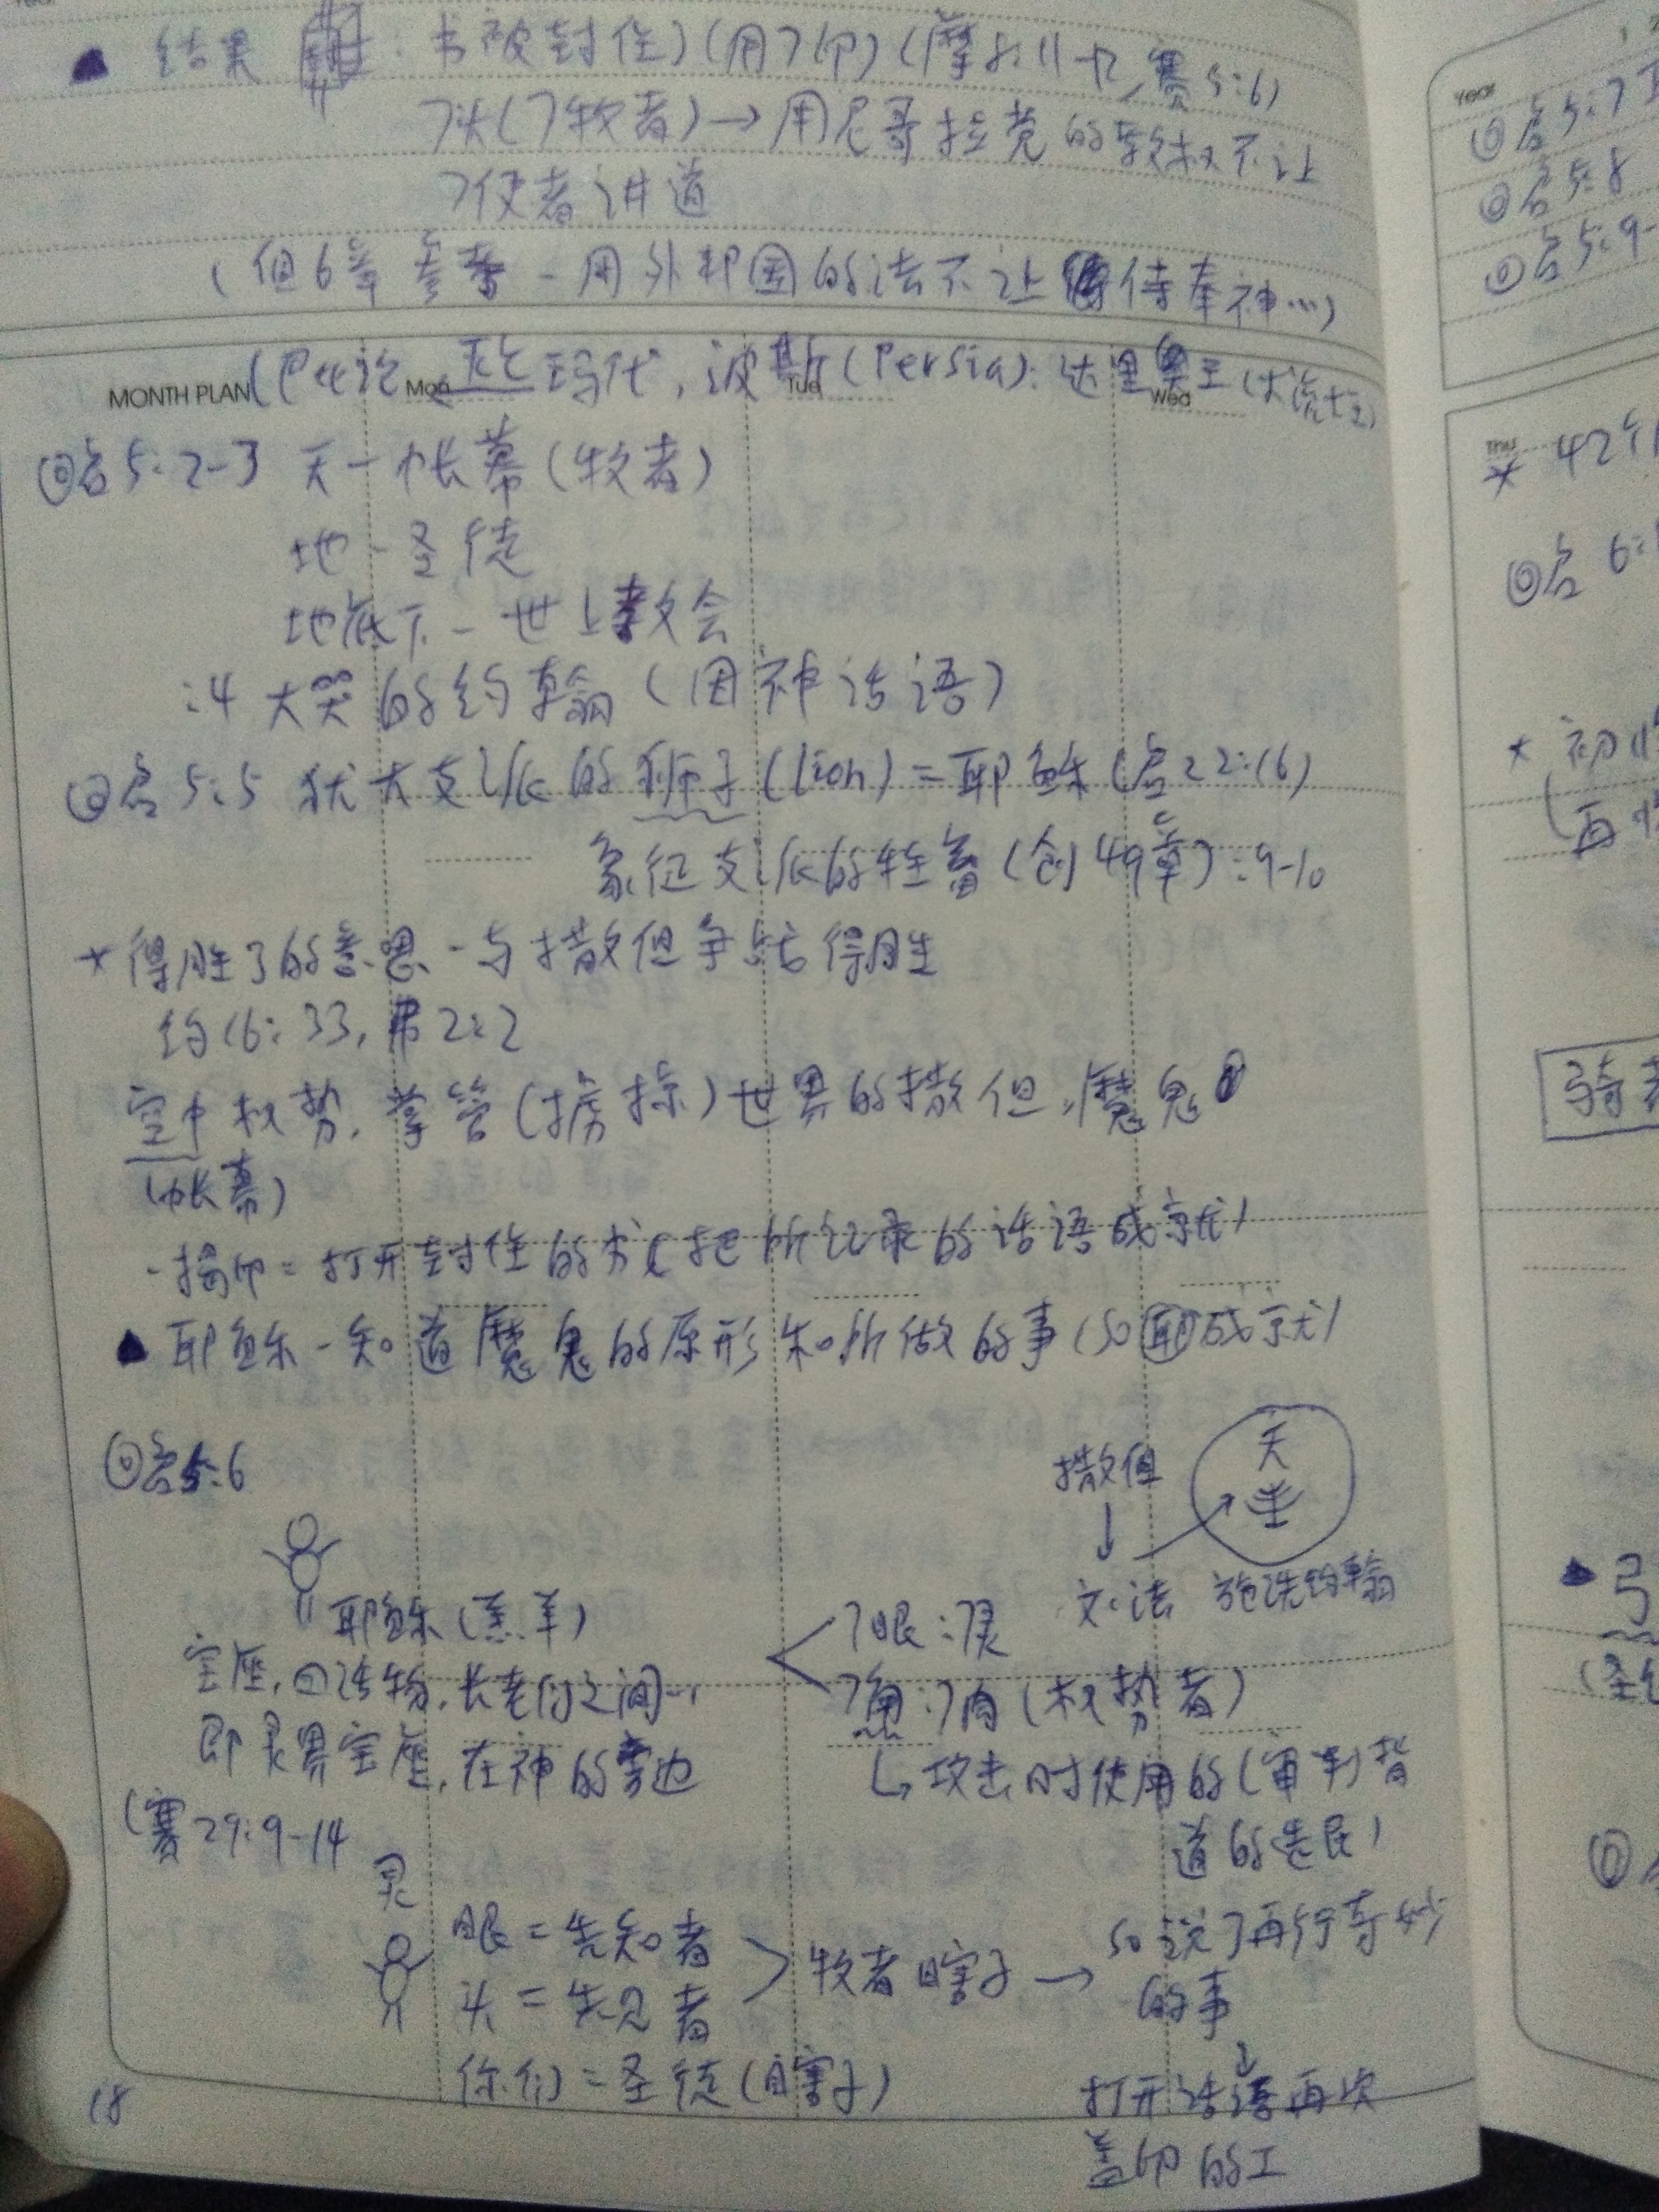 ▲ 结果 : 书被封住)(用7印)(摩8:11-12, 赛5:6)
7头(7牧者)→用尼哥拉党的教权不让
7使者讲道
(但6章参考 - 用外邦国的法不让侍奉神…)
MONTH PLAN Mon Tue Wed
(巴比论 玛代, 波斯(Persia): 达里奥王(大流士王)
◎启5:2-3 天-帐幕(牧者)
地-圣徒
地底下-世上教会
:4 大哭的约翰(因神话语)
◎启5:5 犹大支派的狮子(lion)=耶稣(启22:16)
象征支派的牲畜(创49章):9-10
* 得胜了的意思-与撒但争战得胜
约16:33, 弗2:2
空中权势, 掌管(掳掠)世界的撒但, 魔鬼
(帐幕)
-揭印=打开封住的书(把所记录的话语成就)
▲ 耶稣-知道魔鬼的原形和所做的事(so 耶 成就)
◎启5:6
撒但
↓
文:法
天
施洗约翰
耶稣(羔羊)
宝座, 四活物, 长老们之间…
即灵界宝座, 在神的旁边
7眼:7灵
7角:7角(权势者)
↳攻击时使用的(审判背
道的选民)
(赛29:9-14
灵
眼=先知者
头=先见者
>牧者瞎子→
你们=圣徒(瞎子)
so 说了再行奇妙
的事
↓
打开话语再次
盖印的工
18
Year
◎启5:7
◎启5:8
◎启5:9-
Thu
* 42个
◎启6:
* 初
(再
骑
▲ 弓